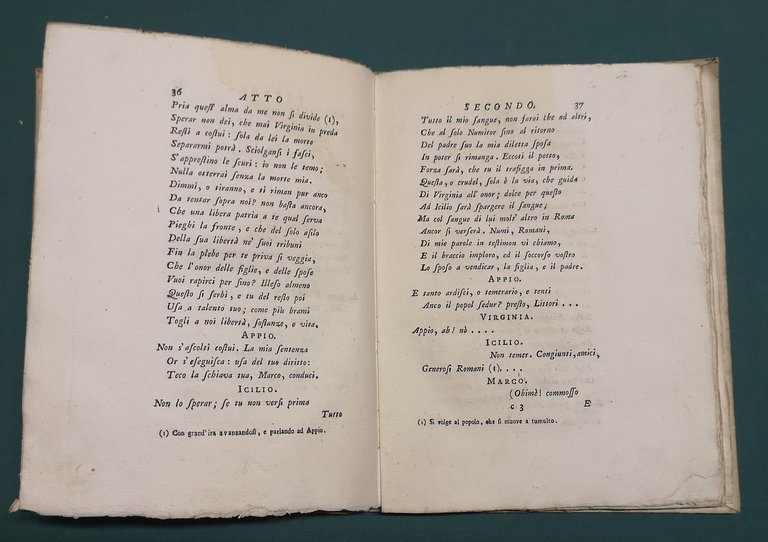 36 ATTO
Pria queſt' alma da me non ſi divide (1),
Sperar non dei, che mai Virginia in preda
Reſti a coſtui: ſola da lei la morte
Separarmi potrà. Sciolganſi i faſci,
S'appreſtino le ſcuri: io non le temo;
Nulla otterrai ſenza la morte mia.
Dimmi, o tiranno, e ti riman pur anco
Da tentar ſopra noi? non baſta ancora,
Che una libera patria a te qual ſerva
Pieghi la fronte, e che del ſolo aſilo
Della ſua libertà ne' ſuoi tribuni
Fin la plebe per te priva ſi veggia,
Che l'onor delle figlie, e delle ſpoſe
Vuoi rapirci per ſino? Illeſo almeno
Queſto ſi ſerbi, e tu del reſto poi
Uſa a talento tuo; come più brami
Togli a noi libertà, ſoſtanze, e vita.
APPIO.
Non s'aſcolti coſtui. La mia ſentenza
Or s'eſeguiſca: uſa del tuo diritto:
Teco la ſchiava tua, Marco, conduci.
ICILIO.
Non lo ſperar; ſe tu non verſi prima
Tutto
(1) Con grand'ira avanzandoſi, e parlando ad Appio.
SECONDO. 37
Tutto il mio ſangue, non ſarai che ad altri,
Che al ſolo Numitor ſino al ritorno
Del padre ſuo la mia diletta ſpoſa
In poter ſi rimanga. Eccoti il petto,
Forza ſarà, che tu il trafigga in prima.
Queſta, o crudel, ſola è la via, che guida
Di Virginia all' onor; dolce per queſto
Ad Icilio ſarà ſpargere il ſangue;
Ma col ſangue di lui molt' altro in Roma
Ancor ſi verſerà. Numi, Romani,
Di mie parole in teſtimon vi chiamo,
E il braccio imploro, ed il ſoccorſo voſtro
Lo ſpoſo a vendicar, la figlia, e il padre.
APPIO.
E tanto ardiſci, o temerario, e tenti
Anco il popol ſedur? preſto, Littori . . .
VIRGINIA.
Appio, ah! nò . . . .
ICILIO.
Non temer. Congiunti, amici,
Generoſi Romani (1). . . .
MARCO.
(Ohimè! commoſſo
c 3 E
(1) Si volge al popolo, che ſi muove a tumulto.